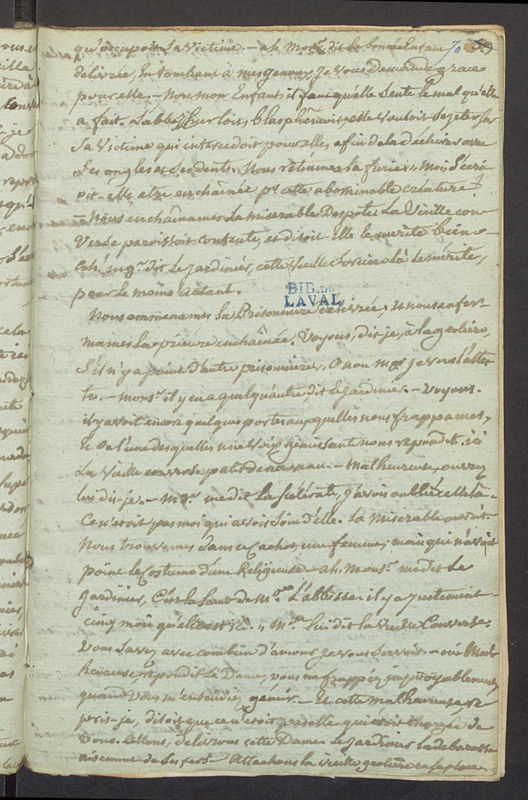 qu'occupoit sa victime. — ah Mgr. dit la bonne enfant 70
délivrée, en tombant à mes genoux, je vous demande grace
pour elle. — Non mon Enfant, il faut qu'elle sente le mal qu'elle
a fait. L'abbesse hurlois, blasphemoit, elle vouloit se jetter sur
sa victime qui intercedoit pour elle, afin de la déchirer avec
ses ongles et ses dents. Nous retinmes la furie. Moi s'écri
oit-elle etre enchaînée pr. cette abominable créature !
— Nous enchaînames la miserable Despote. La Vieille con
verse paroissoit contente, et disoit Elle le merite bien —
Oh ! mgr. dit le jardinier, cette vieille sorciere là le mérite,
pour le moins autant.
BIB. DE
LAVAL
Nous emmenames la Prisonniere délivrée, et nous enfer
mames la prieure enchaînée. Voyons, dis-je, à la geoliere,
s'il n'y a point d'autre prisonniere. O non mgr. je vous l'atteste
— monsr. il y en a quelqu'autre dit le jardinier. — Voyons.
il y avoit encore quelques portes auxquelles nous frappames,
et de l'une desquelles une voix gémissante nous répondit. ici
La Vieille converse palit de nouveau. — Malheureuse, ouvrez
lui dis-je. — Mgr. me dit la scélérate, j'avois oublié celle là
Ce n'étoit pas moi qui avois soin d'elle. la miserable ouvrit.
Nous trouvames dans ce cachot une femme, mais qui n'avoit
point le costume d'une Religieuse — ah. Monsr. me dit le
jardinier, C'est la soeur de Me. L'abbesse. il y a justement
cinq mois qu'elle est ici. „ Me. lui dit la vieille Converse.
Vous savez avec combien d'amour je vous servois — oui Mal
heureuse répondit la Dame, vous me frappiez impitoyablement
quand vous m'entendiez gémir. — Et cette malheureuse re
pris-je, disoit que ce n'étoit pas elle qui étoit chargée de
vous. Allons, délivrons cette Dame. Le jardinier la débarrassa
aisement de ses fers. — Attachons la vieille geoliere en sa place